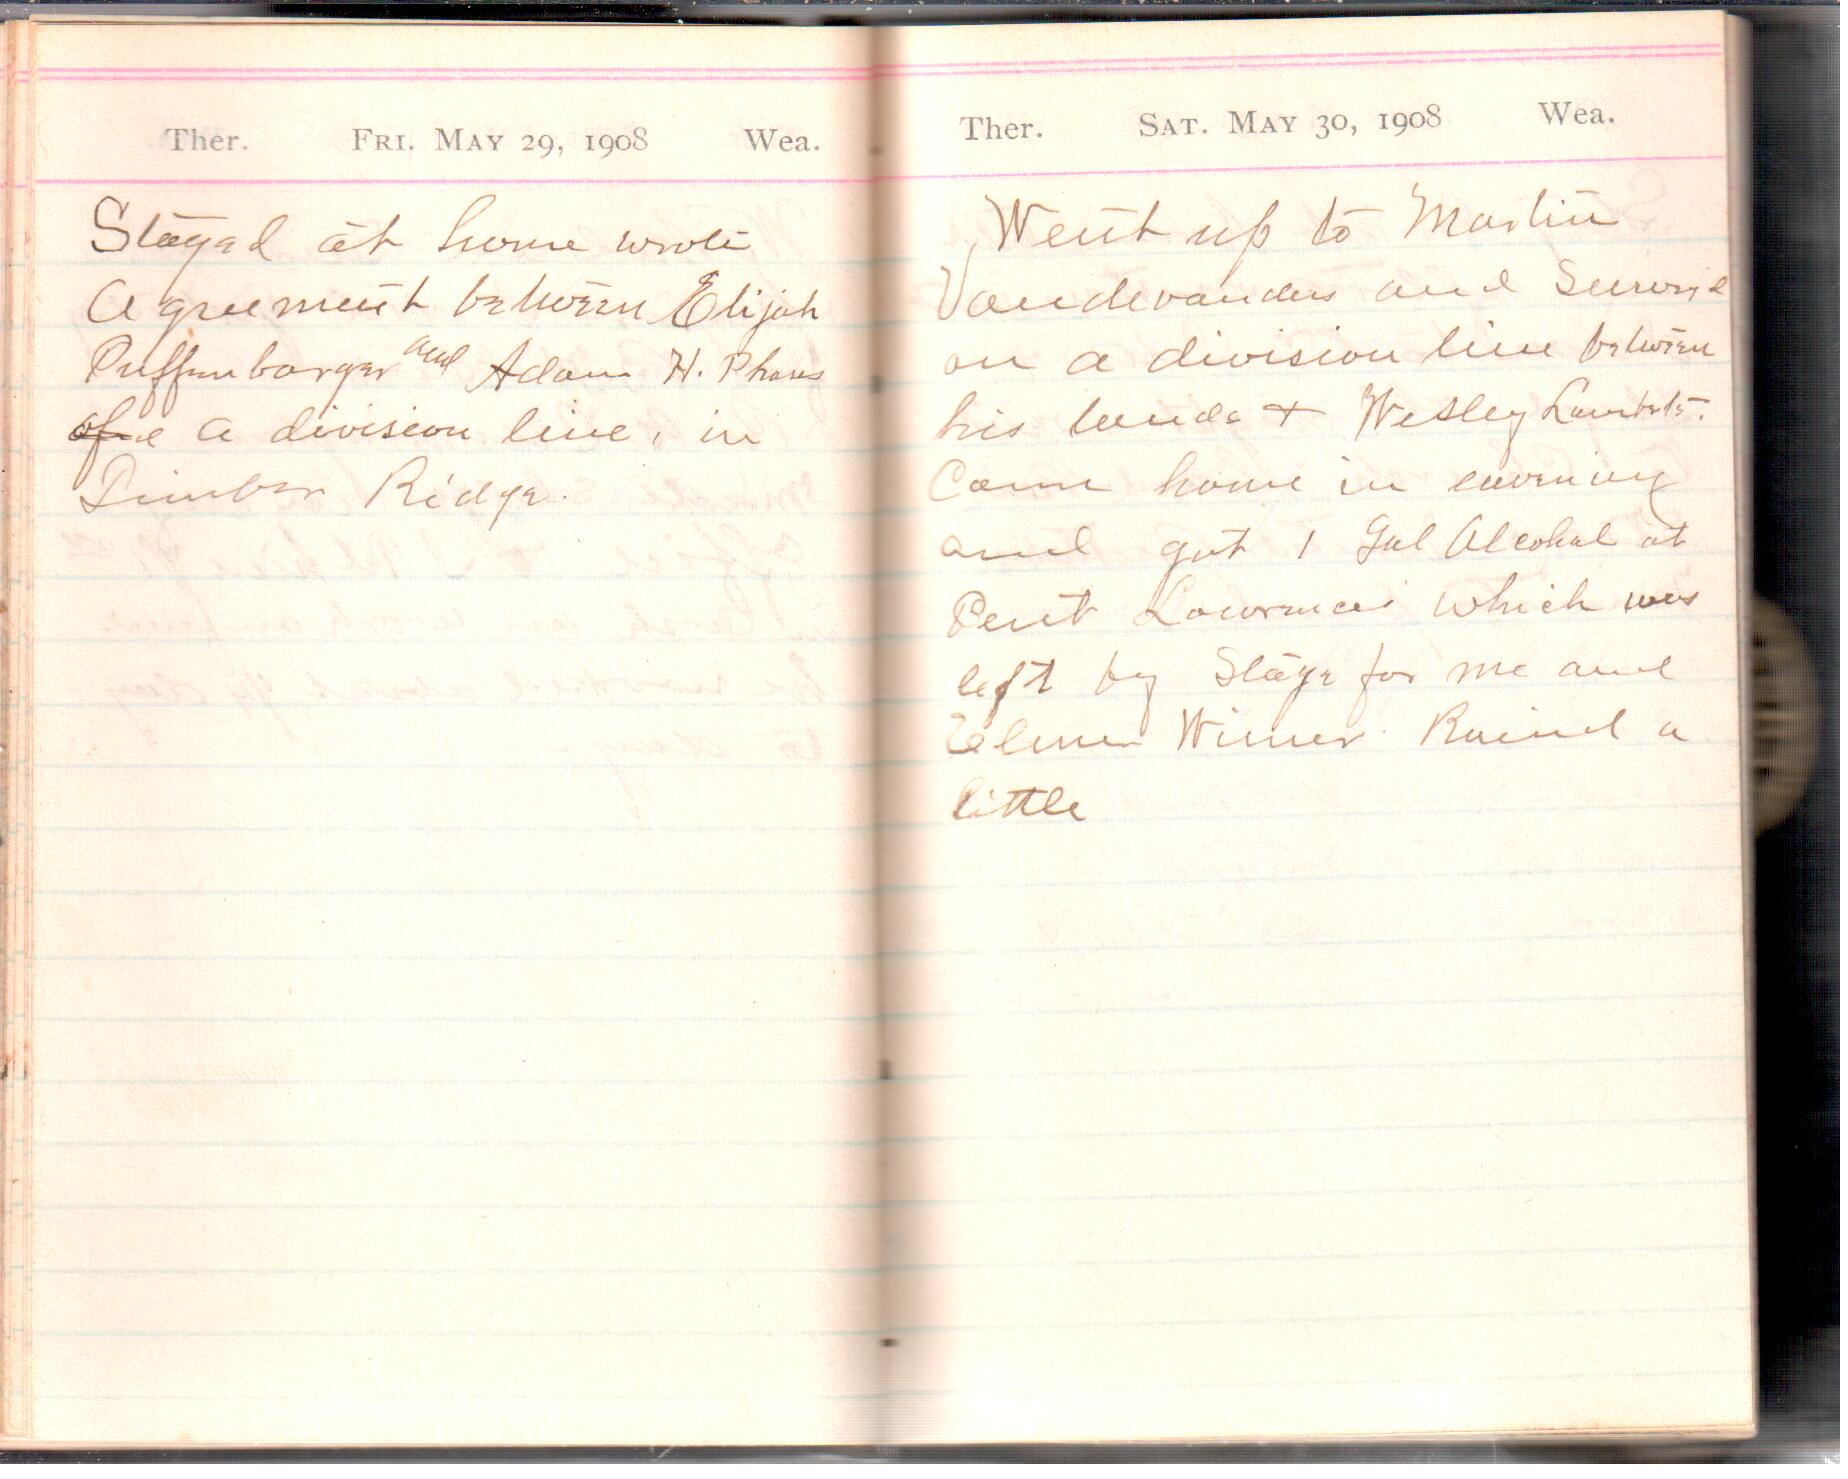 Ther. FRI. MAY 29, 1908 Wea.
Stayed at home wrote
Agreement between Elijah
Puffenbarger and Adam H. Phares
of a division line, in
Timber Ridge.
Ther. SAT. MAY 30, 1908 Wea.
Went up to Martin
Vandevanders and Survird
on a division line between
his lands + Wesley Lamberts.
Came home in evening
and got 1 Gal Alcohal at
Pent Lowrances which was
left by Stage for me and
Elmer Wimer. Raind a
little